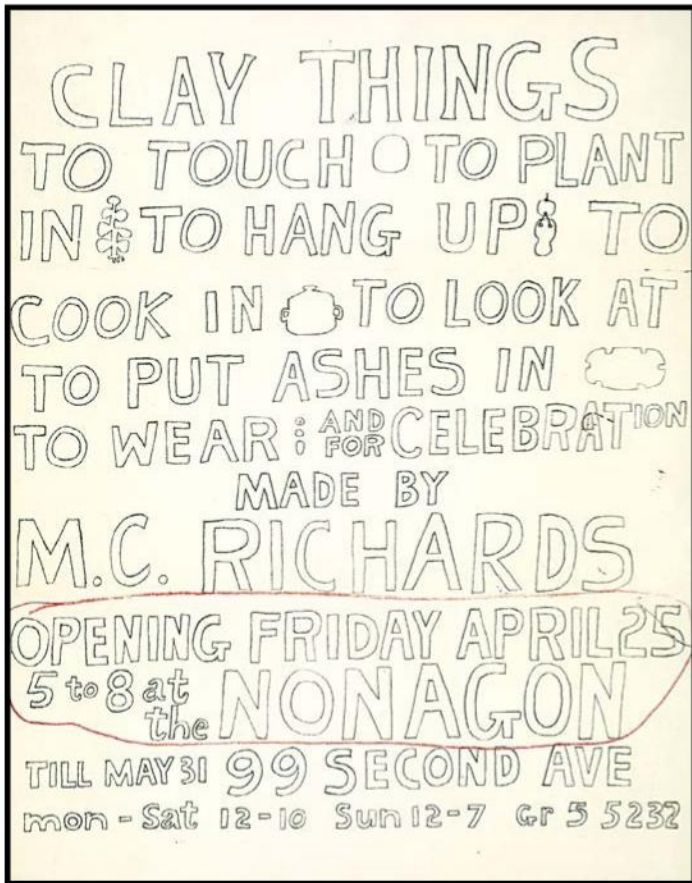 CLAY THINGS
TO TOUCH TO PLANT
IN TO HANG UP TO
COOK IN TO LOOK AT
TO PUT ASHES IN
TO WEAR AND FOR CELEBRATION
MADE BY
M.C. RICHARDS
OPENING FRIDAY APRIL 25
5 to 8 at the NONAGON
TILL MAY 31 99 SECOND AVE
mon - Sat 12-10 Sun 12-7 Gr 5 5232